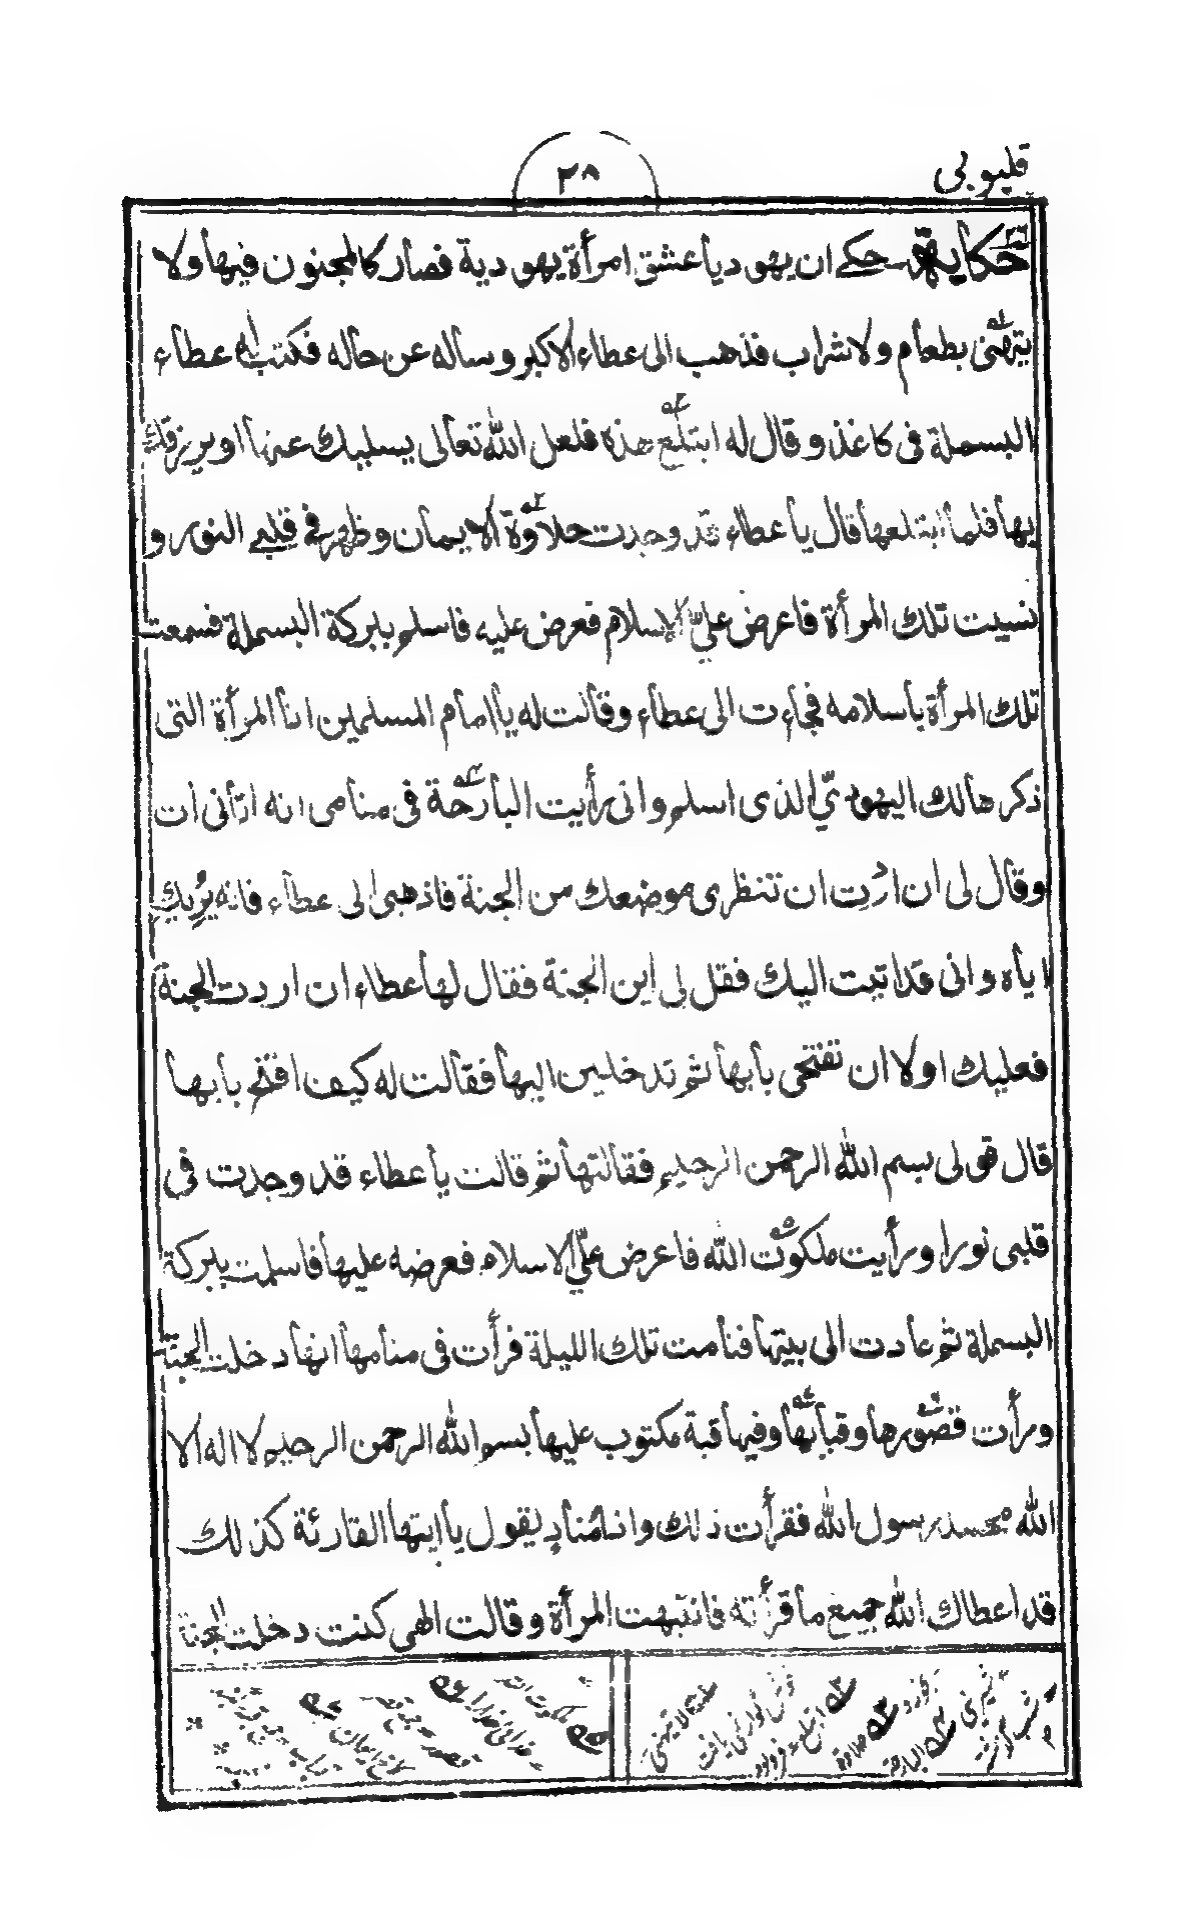 قليوبي
٢٨
حكاية حكي ان يهوديا عشق امرأة يهودية فصار كالمجنون فيها ولا
يتهنى بطعام ولا شراب فذهب الى عطاء الاكبر وساله عن حاله فكتب له عطاء
البسملة فى كاغذ وقال له ابتلع هذه فلعل الله تعالى يسليك عنها او يرزقك
بها فلما ابتلعها قال يا عطاء قد وجدت حلاوة الايمان وظهر في قلبي النور و
نسيت تلك المرأة فاعرض عليّ الاسلام فعرض عليه فاسلم ببركة البسملة فسمعت
تلك المرأة باسلامه فجاءت الى عطاء وقالت له يا امام المسلمين انا المرأة التى
ذكرها لك اليهوديّ الذى اسلم وانى رأيت البارحة فى منامى انه اتانى ات
وقال لى ان اردت ان تنظرى موضعك من الجنة فاذهبى الى عطاء فانه يريك
اياه وانى قد اتيت اليك فقل لى اين الجنة فقال لها عطاء ان اردت الجنة
فعليك اولا ان تفتحى بابها ثم تدخلين اليها فقالت له كيف افتح بابها
قال قولى بسم الله الرحمن الرحيم فقالتها ثم قالت يا عطاء قد وجدت فى
قلبى نورا ورأيت ملكوت الله فاعرض عليّ الاسلام فعرضه عليها فاسلمت ببركة
البسملة ثم عادت الى بيتها فنامت تلك الليلة فرأت فى منامها انها دخلت الجنة
ورأت قصورها وقبابها وفيها قبة مكتوب عليها بسم الله الرحمن الرحيم لا اله الا
الله محمد رسول الله فقرأت ذلك واذا مناد يقول يا ايتها القارئة كذلك
قد اعطاك الله جميع ما قرأته فانتبهت المرأة وقالت الهى كنت دخلت الجنة